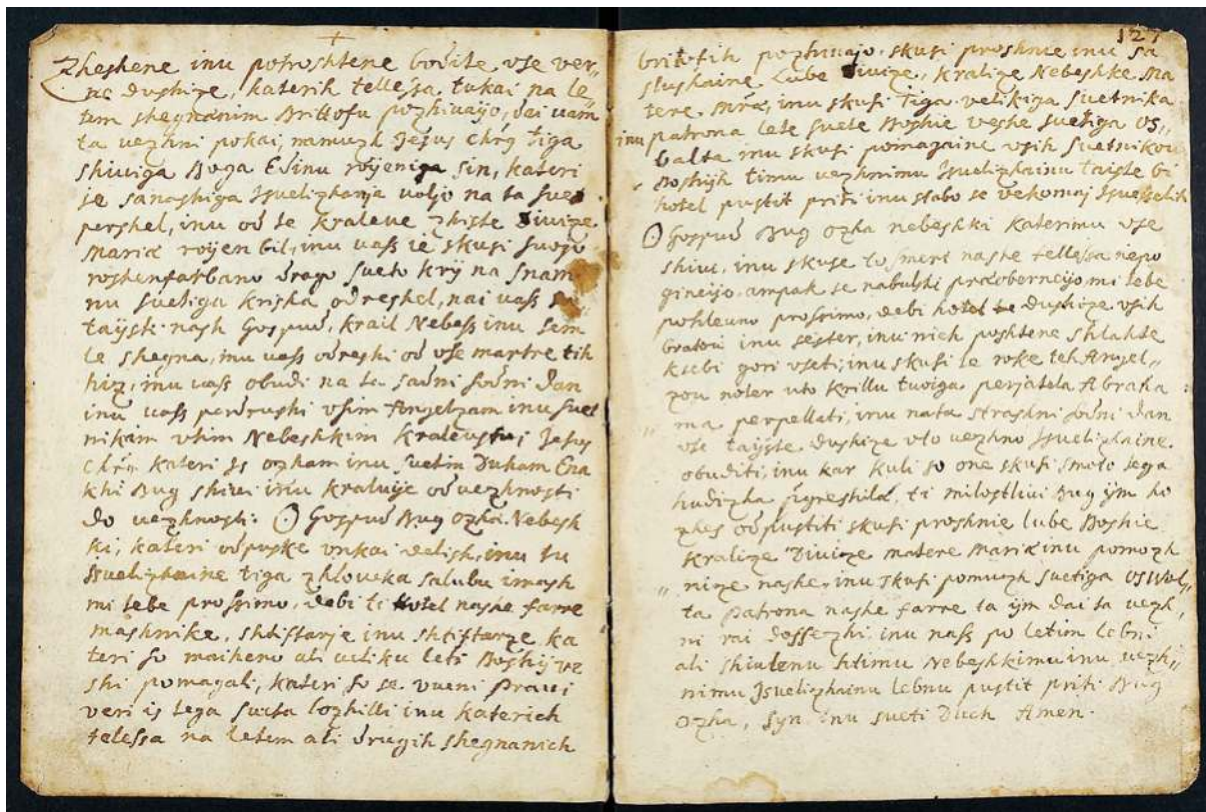 Zheshene inu potroshtene bodite vse ver„
ne dushize, katerih tellessa tukai na le„
tem shegnanim Brittofu pozhivaijo, dai vam
ta vezhni pokai, namuzh Jesus Chrūs tiga
shiviga Boga Edinu roijeniga sin, kateri
je sanashiga Isuelizhanja voljo na ta suet
pershel, inu od te kraleve zhiste Divize
Mariæ roijen bil, inu vass ie skusi suoijo
roshenfarbano drago sueto krij na snam
nu suetiga krisha odreshel, nai vass
taijsti nash Gospud, krail Nebess inu sem
le shegna, inu vass odreshi od vse martre tih
hiz, inu vass obudi na ta sadni sodni dan
inu vass perdrushi vsim Angelzam inu suet
nikam vtim Nebeshkim kralevstvi Jesus
Chrūs kateri Is ozham inu suetim Duham Ena
khi Bug shivi inu kraluije od vezhnosti
do vezhnosti. O Gospud Bug ozha Nebesh
ki, kateri odpuske vnkai delish, inu tu
Isuelizhaine tiga zhloveka salubu imash
mi tebe prossimo, debi ti hotel nashe farre
mashnike, shtiftarje inu shtiftarze ka
teri so maiheno ali veliku leti Boshij ve
shi pomagali, kateri so se vueni Pravi
veri is tega sueta lozhilli inu katerich
telessa na letem ali drugih shegnanich
127
britofih pozhivajo skusi proshnie inu sa
slushaine Lube Divize, kralize Nebeshke Ma
tere Mariæ, inu skusi tiga velikiga suetnika
inu patrona lete suete Boshie veshe suetiga Os„
balta inu skusi pomagaine vsih suetnikou
Boshijh timu vezhnimu Isuelizhainu taiste bi
hotel pustit priti inu stabo se vekomaj Isuesselih
O Gospud Bug ozha nebeshki katerimu vse
shivi, inu skuse to smert nashe tellessa nepo
gineijo, ampak se nabulshi præoberneijo mi tebe
pohleuno prossimo, debi hotel te dushize vsih
bratou inu sester, inu nich poshtene shlahte
ksebi gori vseti, inu skusi te roke teh Angel„
zou noter vto krillu tvoiga perjatela Abraha
ma perpellati, inu nata strashni sodni dan
vse taijste dushize vto vezhno Isuelizhaine
obuditi, inu kar kuli so one skusi smoto tega
hudizha sgreshila, ti milostlivi Bug ijm ho
zhes odpustiti skusi proshnie lube Boshie
kralize Divize matere Mariæ inu pomozh
„ nize nashe, inu skusi pomuzh suetiga Oswol„
ta Patrona nashe farre ta ijm dai ta vezh„
ni rai dossezhi, inu nass po letim lebni
ali shivlenu ktimu Nebeshkimu inu vezh„
nimu Isuelizhainu lebnu pustit priti Bug
ozha, Syn inu sueti Duch Amen.